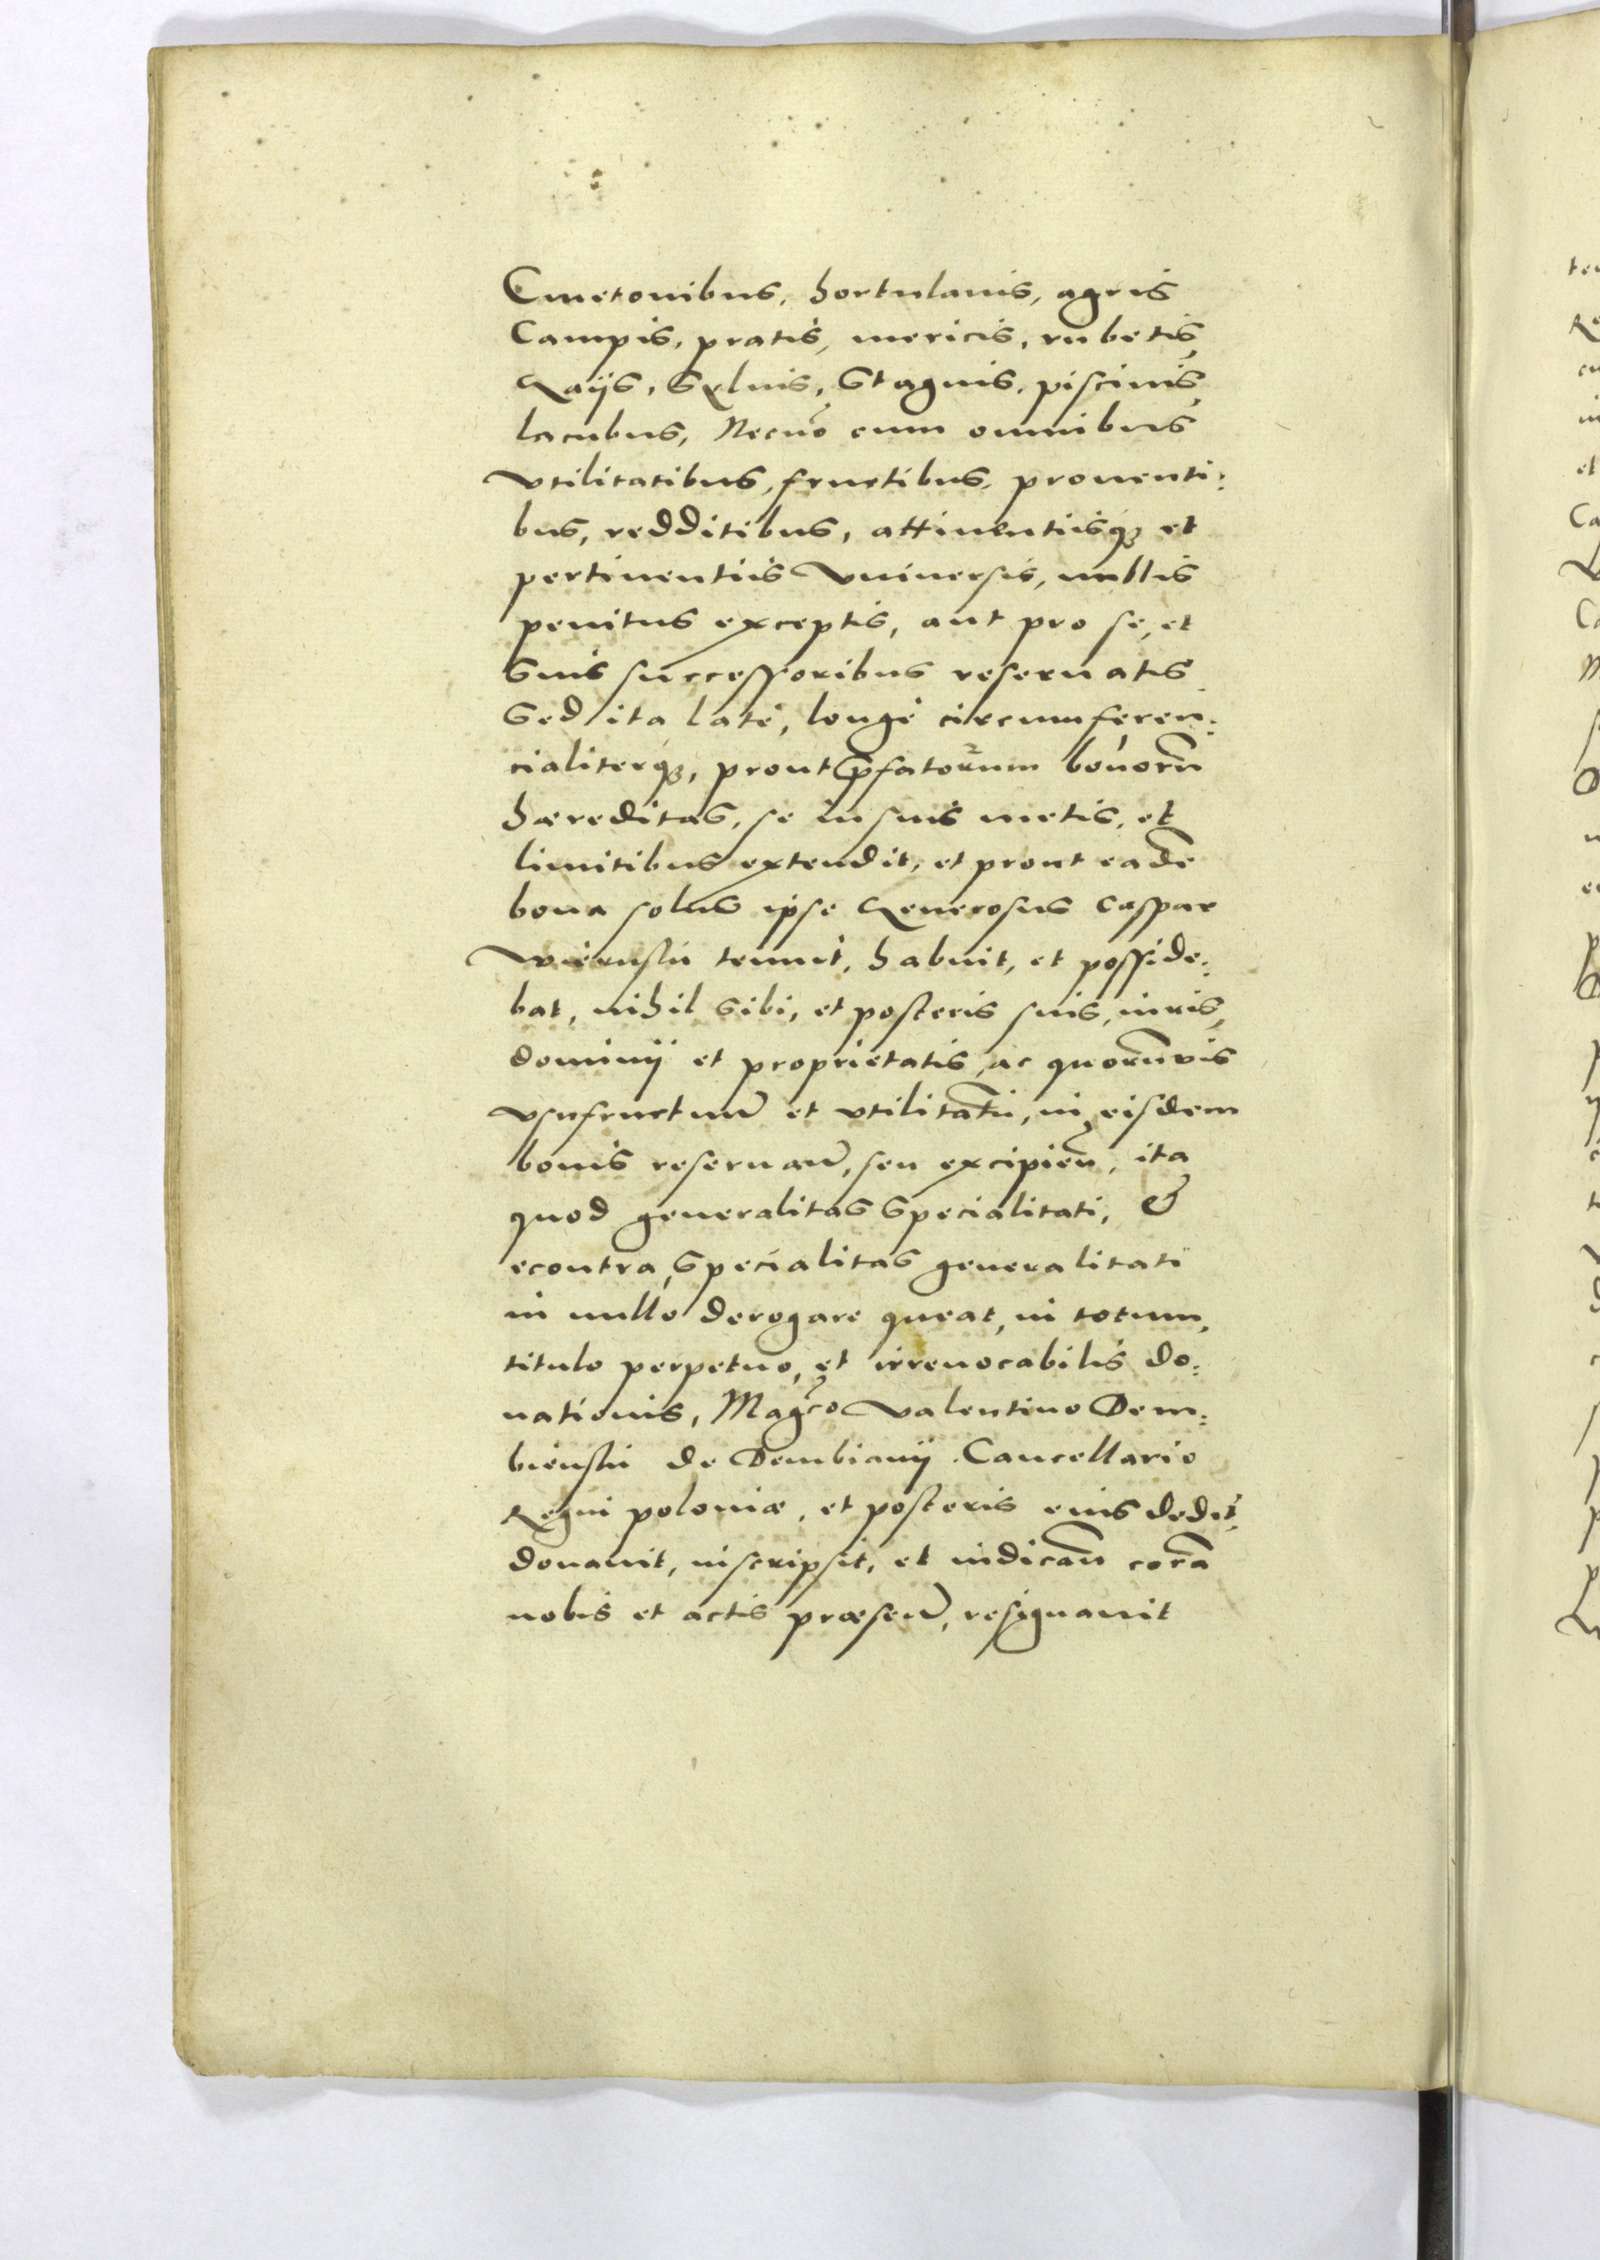 Cmetonibus, hortulanis, agris
Campis, pratis, mericis, rubetis,
Gaijs, Syluis, Stagnis, piscinis,
lacubus, Necnō cum omnibus
vtilitatibus, fructibus, prouenti:
bus, redditibus, attinentiisq₃ et
pertinentiis vniuersis, nullis
penitus exceptis, aut pro se, et
suis successoribus reseruatis
Sed ita latè, longè circumferen:
cialiterq₃, prout p̄fatorum bonorū
hæreditas, se in suis metis, et
limitibus extendit, et prout eadē
bona solus ipse Generosus Caspar
wiernskii tenuit, habuit, et posside:
bat, nihil sibi, et posteris suis, iuris,
dominij et proprietatis, ac quorūvis
vsufructuū et vtilitatū, in eisdem
bonis reseruaн̄, seu excipień, ita
quod generalitas specialitati, &
econtra, specialitas generalitati
in nullo derogare queat, in totum,
titulo perpetuo, et irreuocabilis do:
nationis, Mag͠co Valentino Dem:
bienskii de Dembianij Cancellario
Regni poloniæ, et posteris eius dedit,
donauit, inscripsit, et iudicaн̄ corā
nobis et actis præseн̄, resignauit